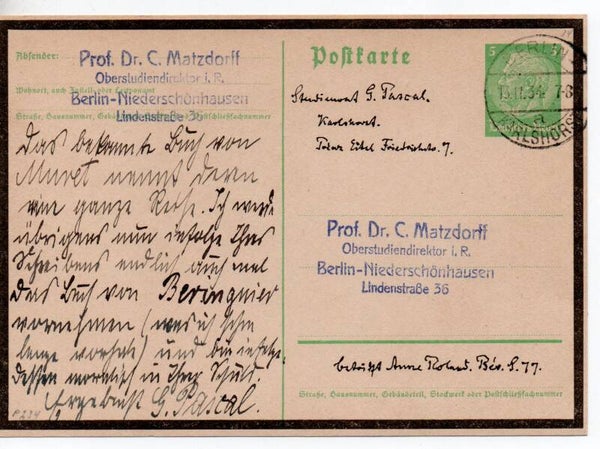 Absender:
Prof. Dr. C. Matzdorff
Oberstudiendirektor i. R.
Wohnort, auch Zustell- oder Leitpostamt
Berlin-Niederschönhausen
Lindenstraße 36
Straße, Hausnummer, Gebäudeteil, Stockwerk oder Postschließfachnummer
Das bekannte Buch von
Muret nennt deren
eine ganze Reihe. Ich werde
übrigens nun infolge Ihres
Schreibens endlich auch mal
das Buch von Beringuier
vornehmen (was ich schon
lange vorhab) und bin infolge-
dessen moralisch in Ihrer Schuld.
Ergebenst G. Pascal.
P234
Postkarte
5
BERLIN
15.11.34 7-8
a
KARLSHORST
Studienrat G. Pascal.
Karlshorst.
Prinz Eitel Friedrichstr. 7.
Prof. Dr. C. Matzdorff
Oberstudiendirektor i. R.
Berlin-Niederschönhausen
Lindenstraße 36
betrifft Anne Roland. Bér. S. 77.
Straße, Hausnummer, Gebäudeteil, Stockwerk oder Postschließfachnummer